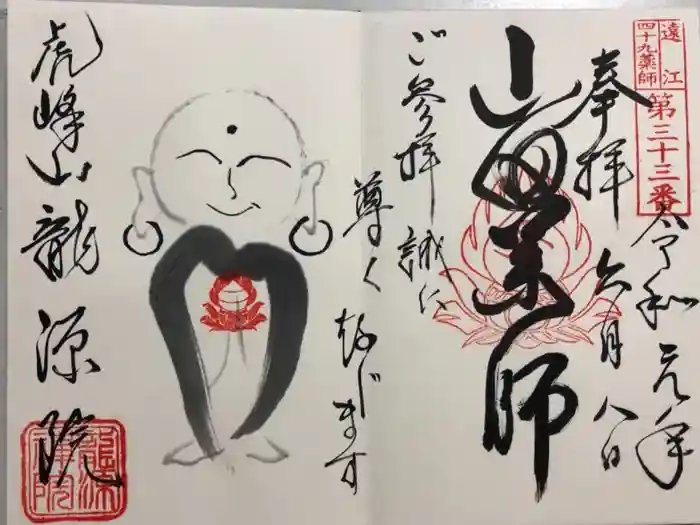 遠江
四十九薬師
第三十三番
奉拝
令和元年
六月八日
山田薬師
ご参拝誠に
尊く存じます
虎峰山龍源院